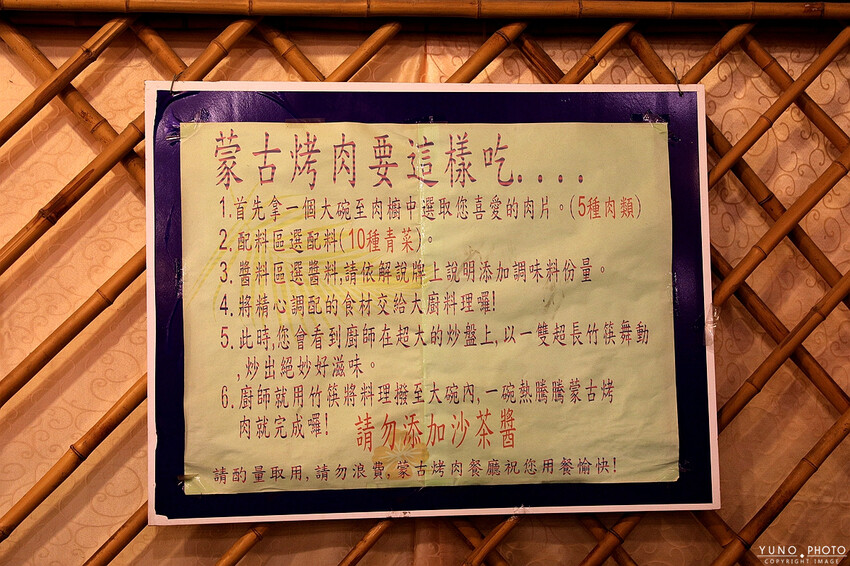 蒙古烤肉要這樣吃....
1.首先拿一個大碗至肉櫥中選取您喜愛的肉片。(5種肉類)
2.配料區選配料(10種青菜)。
3.醬料區選醬料,請依解說牌上說明添加調味料份量。
4.將精心調配的食材交給大廚料理囉!
5.此時,您會看到廚師在超大的炒盤上,以一雙超長竹筷舞動
,炒出絕妙好滋味。
6.廚師就用竹筷將料理撥至大碗內,一碗熱騰騰蒙古烤
肉就完成囉!
請勿添加沙茶醬
請酌量取用,請勿浪費,蒙古烤肉餐廳祝您用餐愉快!
YUNO.PHOTO
COPYRIGHT IMAGE